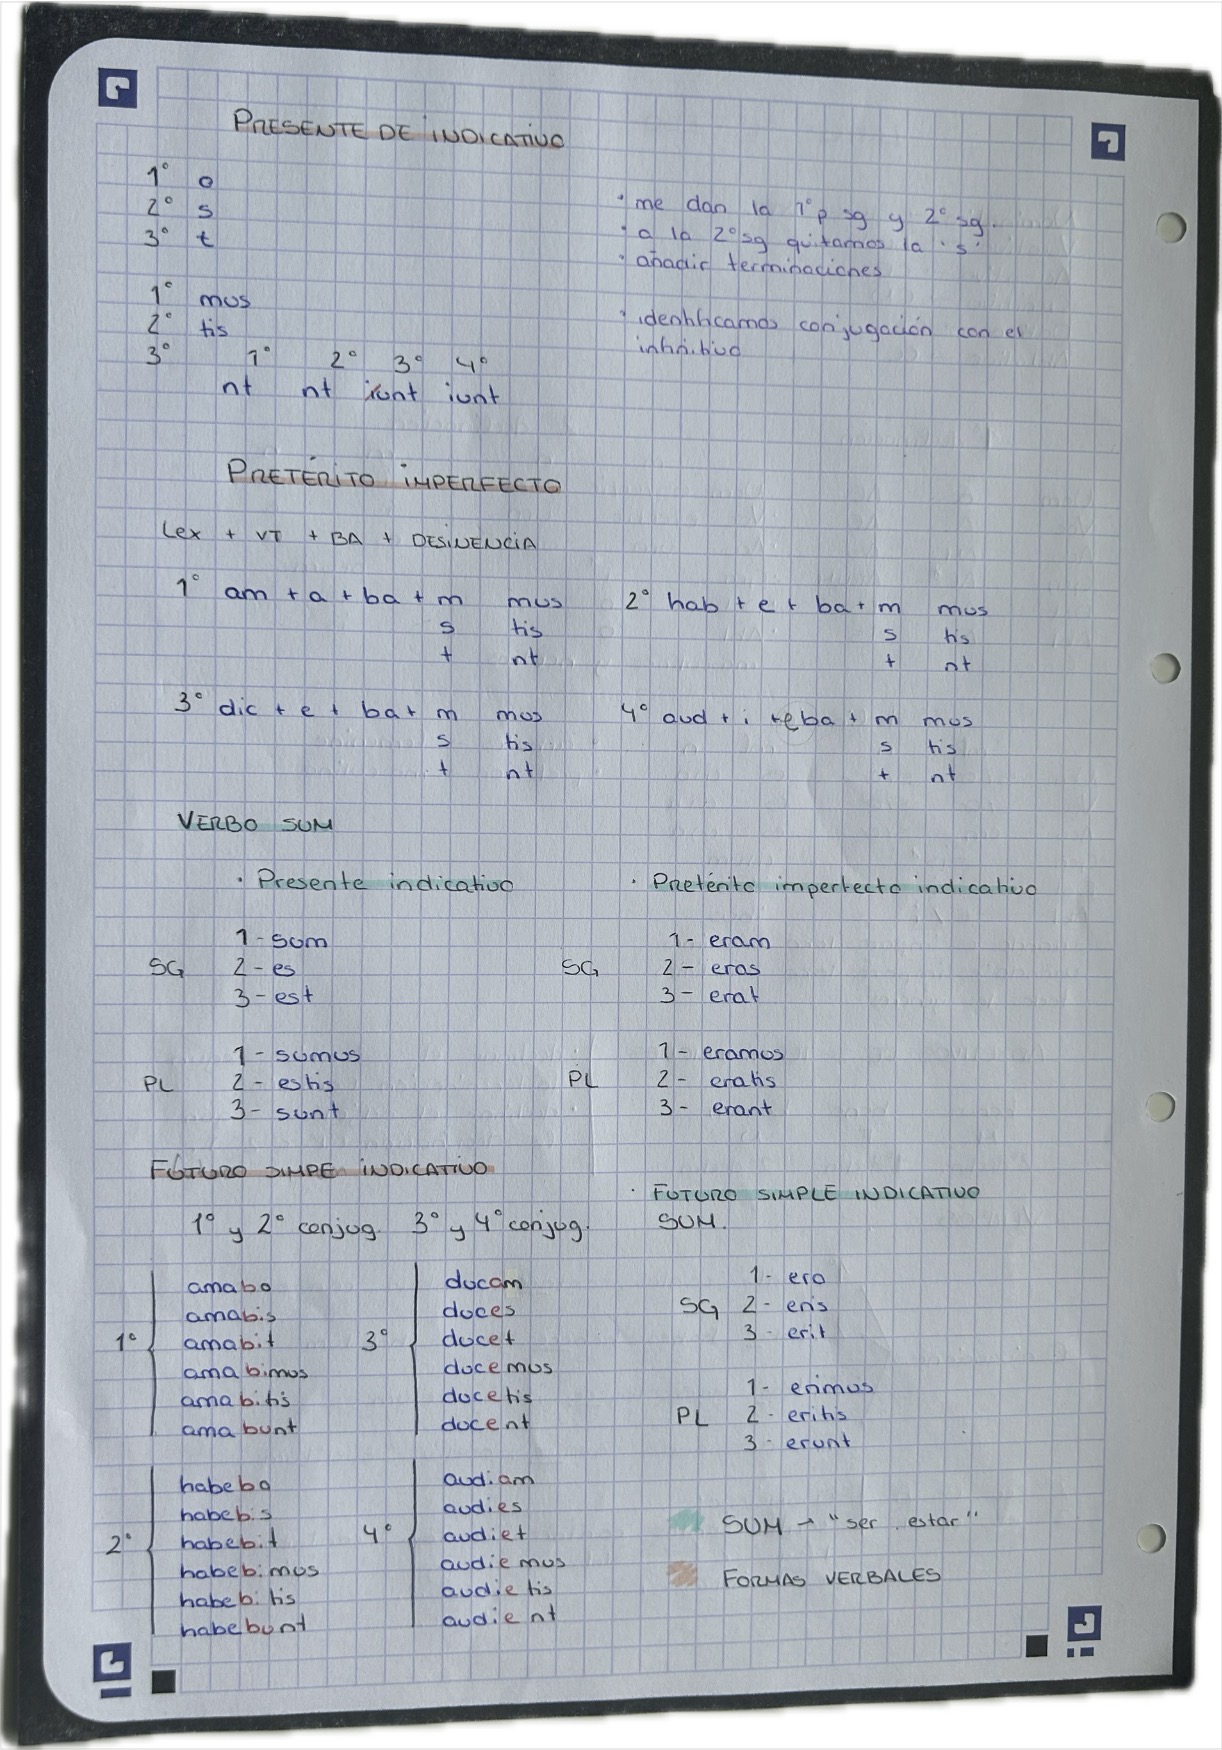 PRESENTE DE INDICATIVO
1º o
2º s
3º t
1º mus
2º tis
3º 1º 2º 3º 4º
nt nt iunt iunt
· me dan la 1º p sg y 2º sg.
· a la 2º sg quitamos la 's'
· añadir terminaciones
· identificamos conjugación con el
infinitivo
PRETÉRITO IMPERFECTO
Lex + VT + BA + DESINENCIA
1º am + a + ba + m mus
s tis
t nt
2º hab + e + ba + m mus
s tis
t nt
3º dic + e + ba + m mus
s tis
t nt
4º aud + i + eba + m mus
s tis
t nt
VERBO SUM
· Presente indicativo
1 - sum
SG 2 - es
3 - est
1 - sumus
PL 2 - estis
3 - sunt
· Pretérito imperfecto indicativo
1 - eram
SG 2 - eras
3 - erat
1 - eramus
PL 2 - eratis
3 - erant
FUTURO SIMPE INDICATIVO
1º y 2º conjug. 3º y 4º conjug.
amabo
amabis
1º amabit
amabimus
amabitis
amabunt
ducam
duces
3º ducet
ducemus
ducetis
ducent
habebo
habebis
2º habebit
habebimus
habebitis
habebunt
audiam
audies
4º audiet
audiemus
audietis
audient
· FUTURO SIMPLE INDICATIVO
SUM.
1 - ero
SG 2 - eris
3 - erit
1 - erimus
PL 2 - eritis
3 - erunt
SUM → "ser, estar"
FORMAS VERBALES